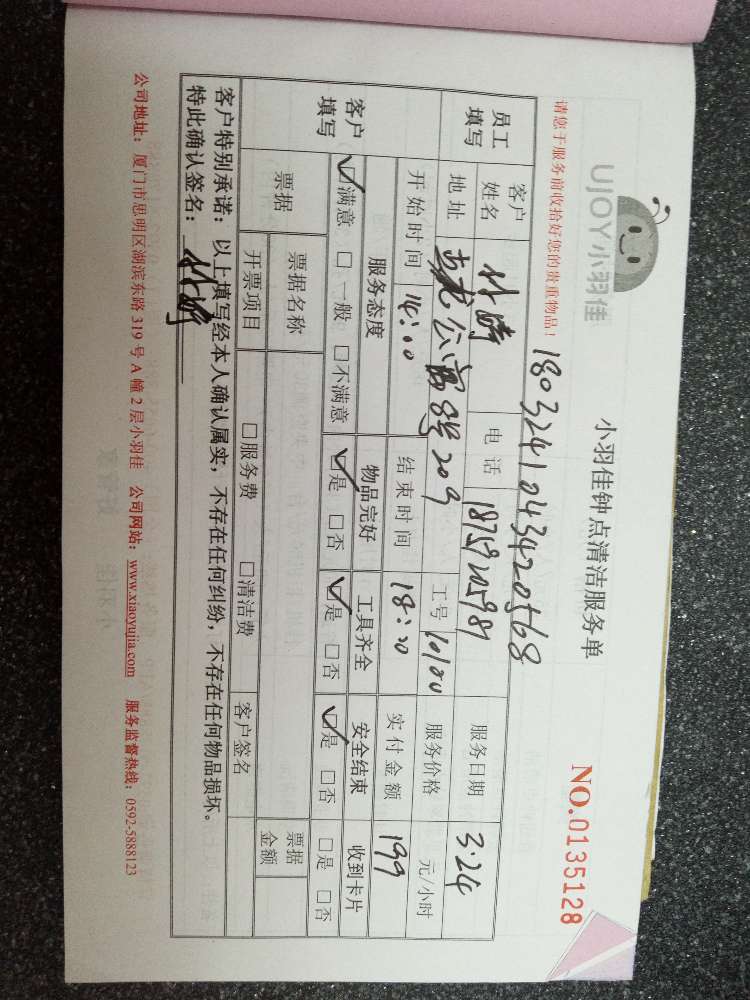 UJOY小羽佳
小羽佳钟点清洁服务单
NO.0135128
请您于服务前收拾好您的贵重物品!
1803241043420568
员工填写 客户姓名 林 电话 服务日期 3.24
地址 公寓 209 工号 服务价格 元/小时
开始时间 14:00 结束时间 18:00 实付金额 199
客户填写 服务态度 物品完好 工具齐全 安全结束 收到卡片
☑满意 □一般 □不满意 ☑是 □否 ☑是 □否 ☑是 □否 □是 □否
票据 票据名称 客户签名 票据金额
开票项目 □服务费 □清洁费
客户特别承诺:以上填写经本人确认属实,不存在任何纠纷,不存在任何物品损坏。
特此确认签名: 林
公司地址:厦门市思明区湖滨东路 319 号 A 幢 2 层小羽佳 公司网站:www.xiaoyujia.com 服务监督热线:0592-5888123